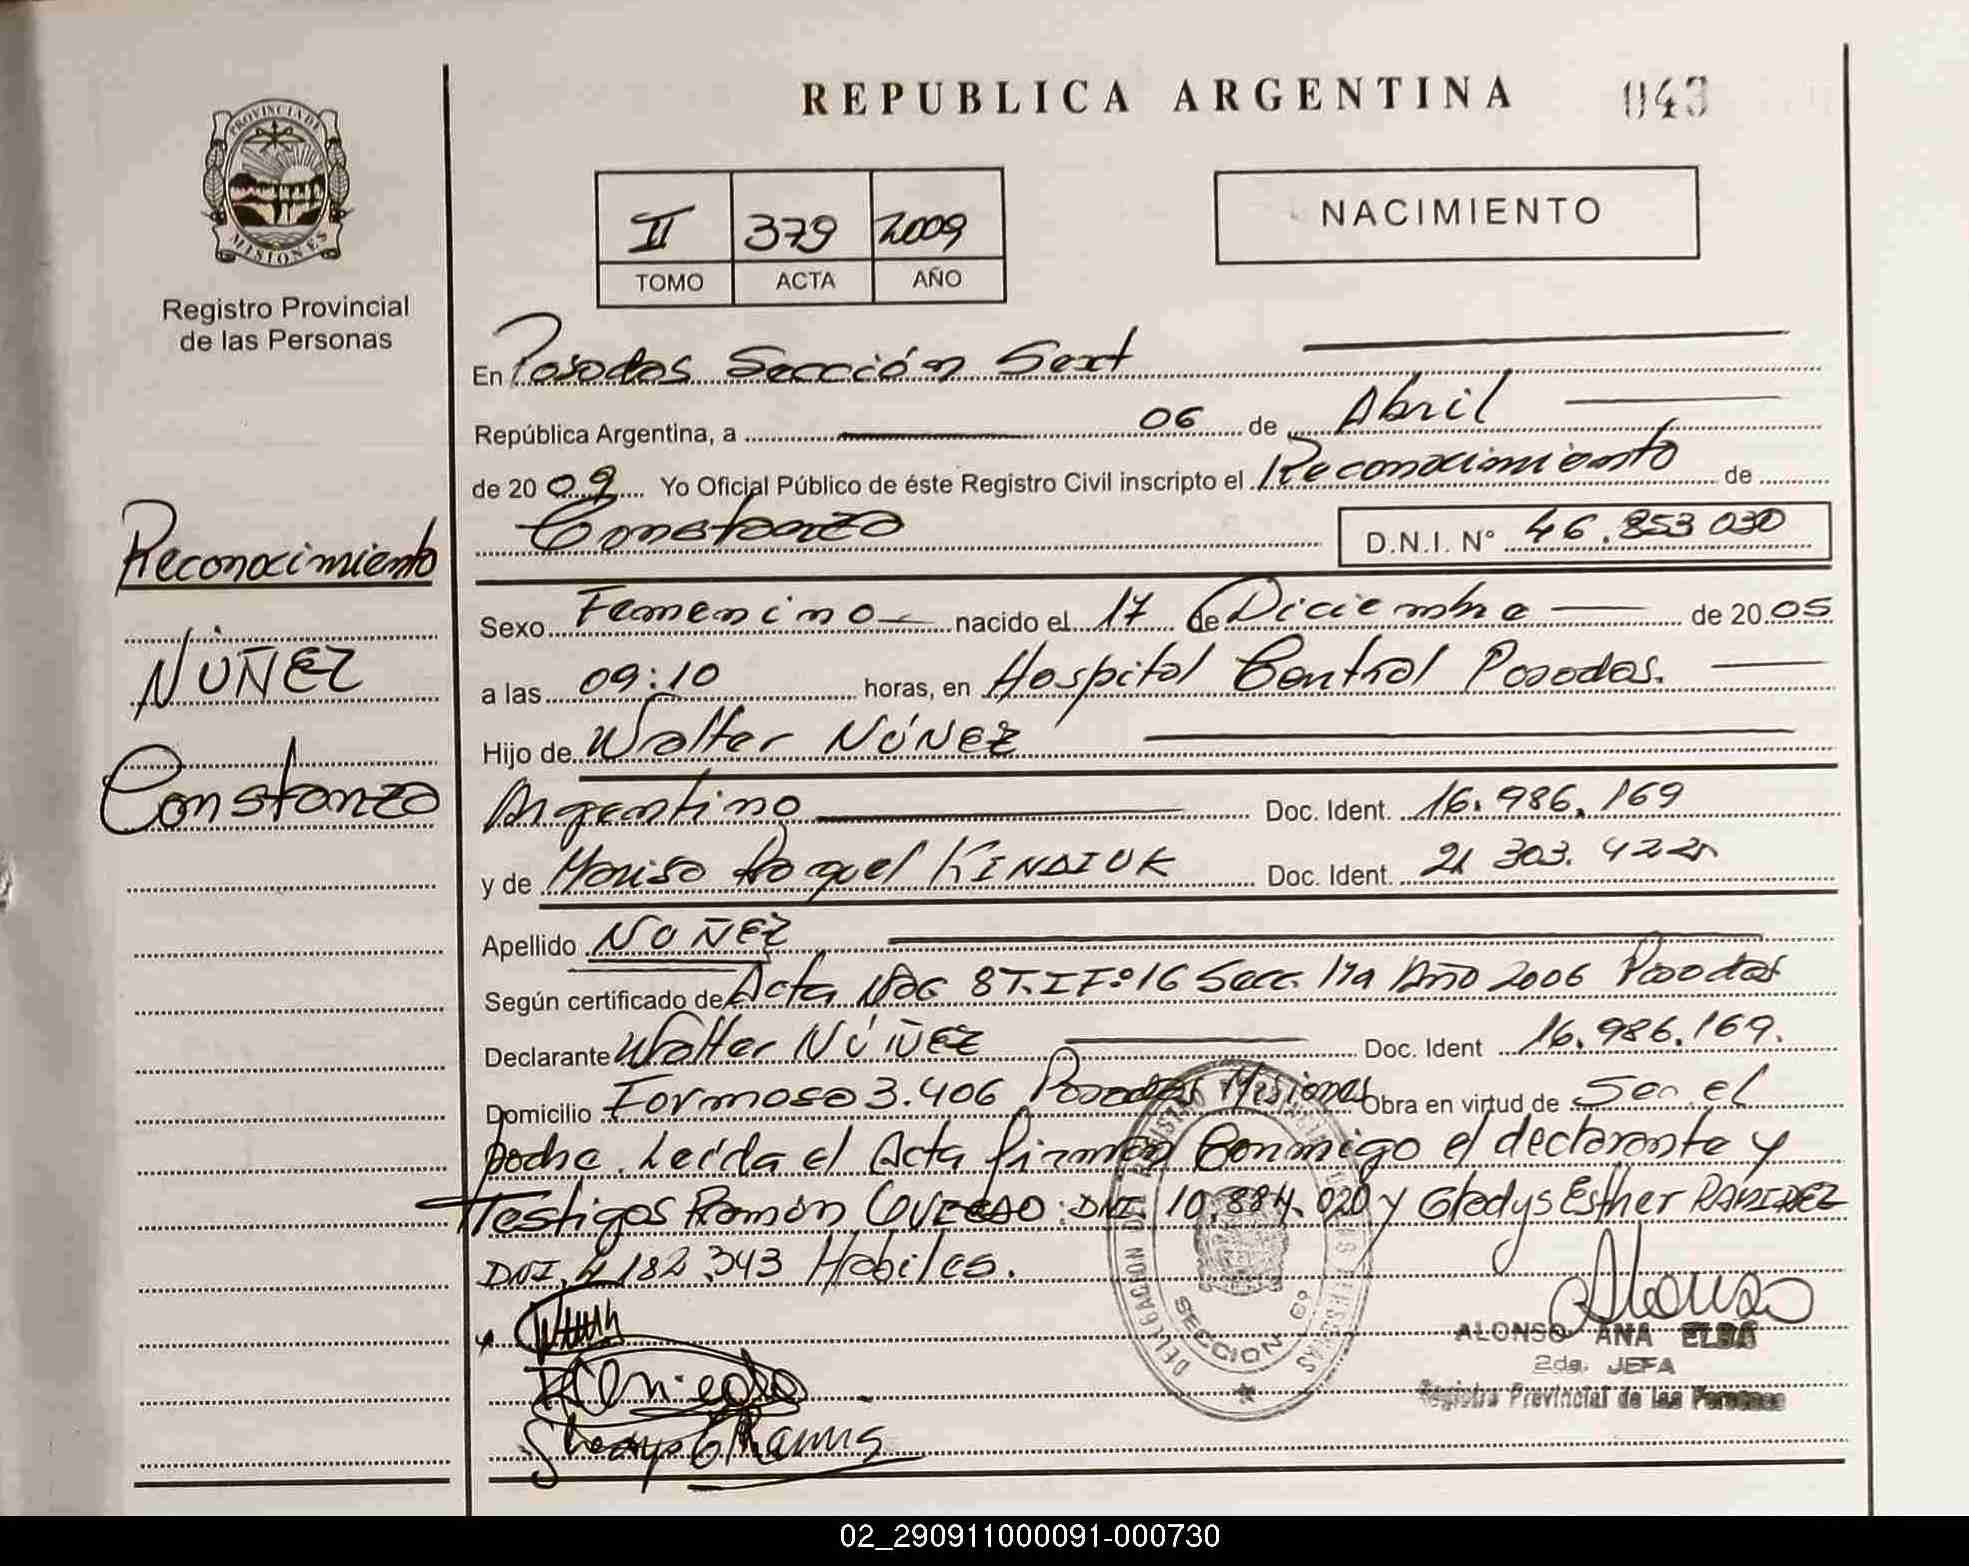 REPUBLICA ARGENTINA 043
PROVINCIA DE
MISIONES
Registro Provincial
de las Personas
II 379 2009
TOMO ACTA AÑO
NACIMIENTO
En Posadas Sección Sext
República Argentina, a 06 de Abril
de 20 09 Yo Oficial Público de éste Registro Civil inscripto el Reconocimiento de
Constanza D.N.I. N° 46.853 030
Sexo Femenino nacido el 17 de Diciembre de 20 05
a las 09:10 horas, en Hospital Central Posadas.
Hijo de Walter NÚNEZ
Argentino Doc. Ident. 16.986.169
y de Marisa Raquel KINDIUK Doc. Ident. 21 303.422
Apellido NUÑEZ
Según certificado de Acta Nac 8 T.I Fº16 Secc. 11a Año 2006 Posadas
Declarante Walter NÚÑEZ Doc. Ident 16.986.169.
Domicilio Formosa 3.406 Posadas Misiones Obra en virtud de Ser el
padre. Leída el Acta firman Conmigo el declarante y
Testigos Ramón OVIEDO DNI. 10.884.020 y Gladys Esther RAMIREZ
DNI. 4182.343 Habiles.
Reconocimiento
NUÑEZ
Constanza
SECCION 6º
ALONSO ANA ELBA
2da. JEFA
Registro Provincial de las Personas
02_290911000091-000730